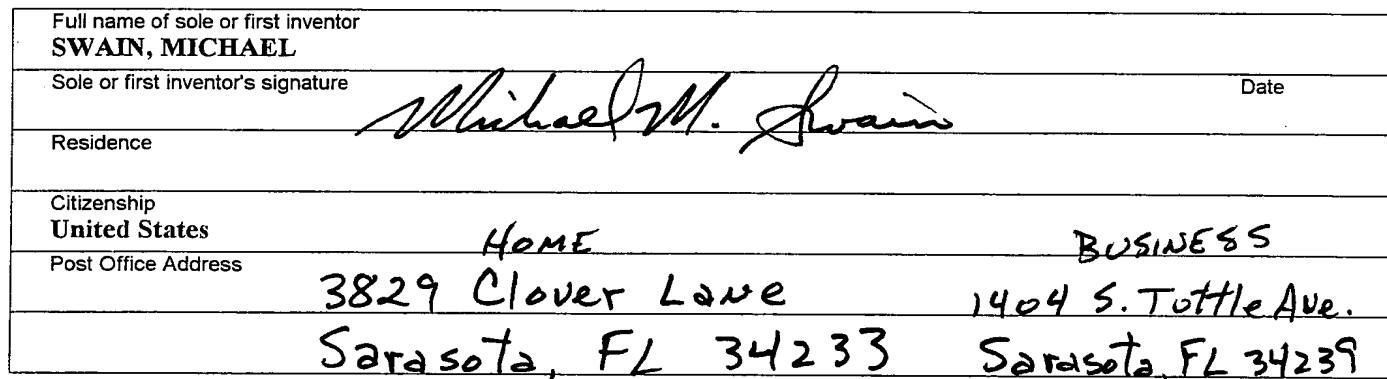 Full name of sole or first inventor
SWAIN, MICHAEL
Sole or first inventor's signature Date
Michael M. Swain
Residence
Citizenship
United States
HOME BUSINESS
Post Office Address
3829 Clover Lane 1404 S. Tuttle Ave.
Sarasota, FL 34233 Sarasota, FL 34239